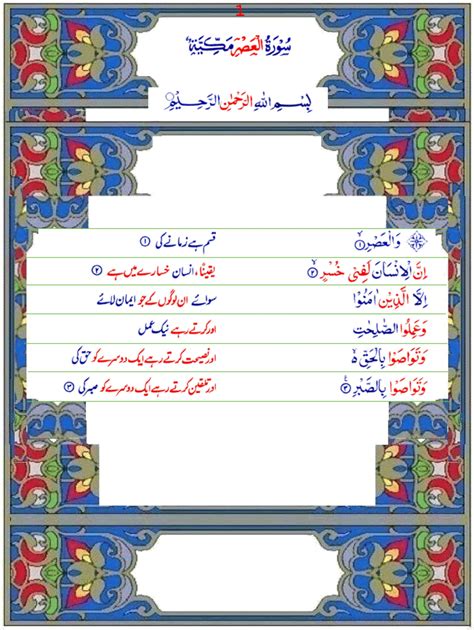 1
سُوْرَةُ الْعَصْرِ مَكِّيَّةٌ
بِسْمِ اللهِ الرَّحْمٰنِ الرَّحِيْمِ
وَالْعَصْرِ ۙ﴿۱﴾ قسم ہے زمانے کی ﴿۱﴾
اِنَّ الْاِنْسَانَ لَفِیْ خُسْرٍ ۙ﴿۲﴾ یقیناً، انسان خسارے میں ہے ﴿۲﴾
اِلَّا الَّذِيْنَ اٰمَنُوْا سوائے ان لوگوں کے جو ایمان لائے
وَعَمِلُوا الصّٰلِحٰتِ اور کرتے رہے نیک عمل
وَتَوَاصَوْا بِالْحَقِّ ۙ۬ اور نصیحت کرتے رہے ایک دوسرے کو حق کی
وَتَوَاصَوْا بِالصَّبْرِ ﴿۳﴾ اور تلقین کرتے رہے ایک دوسرے کو صبر کی ﴿۳﴾